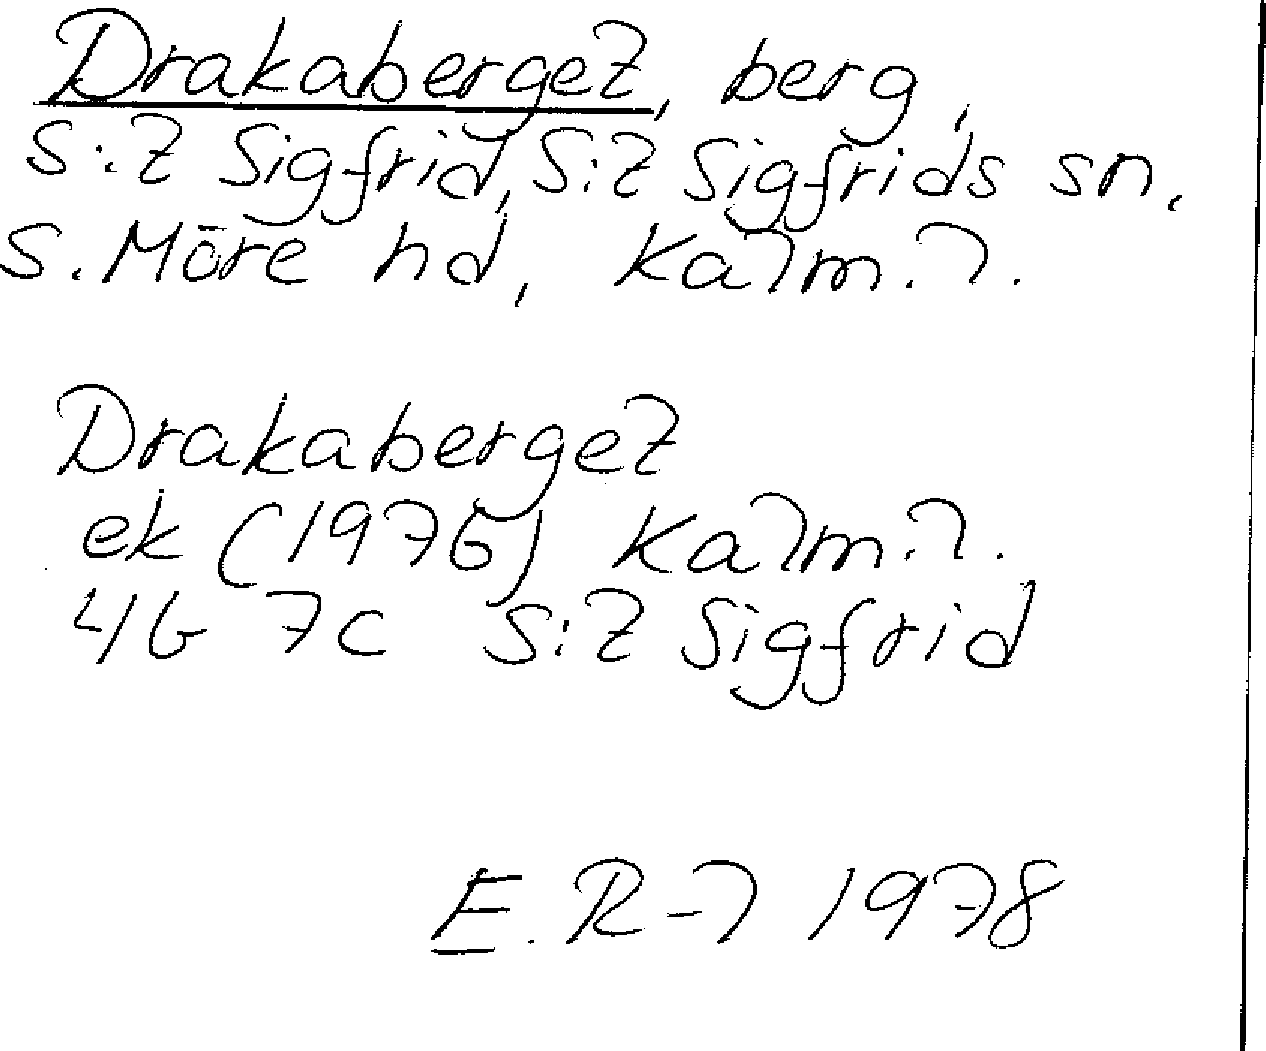 Drakaberget, berg,
S:t Sigfrid, S:t Sigfrids sn.
S. Möre hd, Kalm. l.
Drakaberget
ek (1976) Kalm. l.
4G 7c S:t Sigfrid
E. R-l 1978